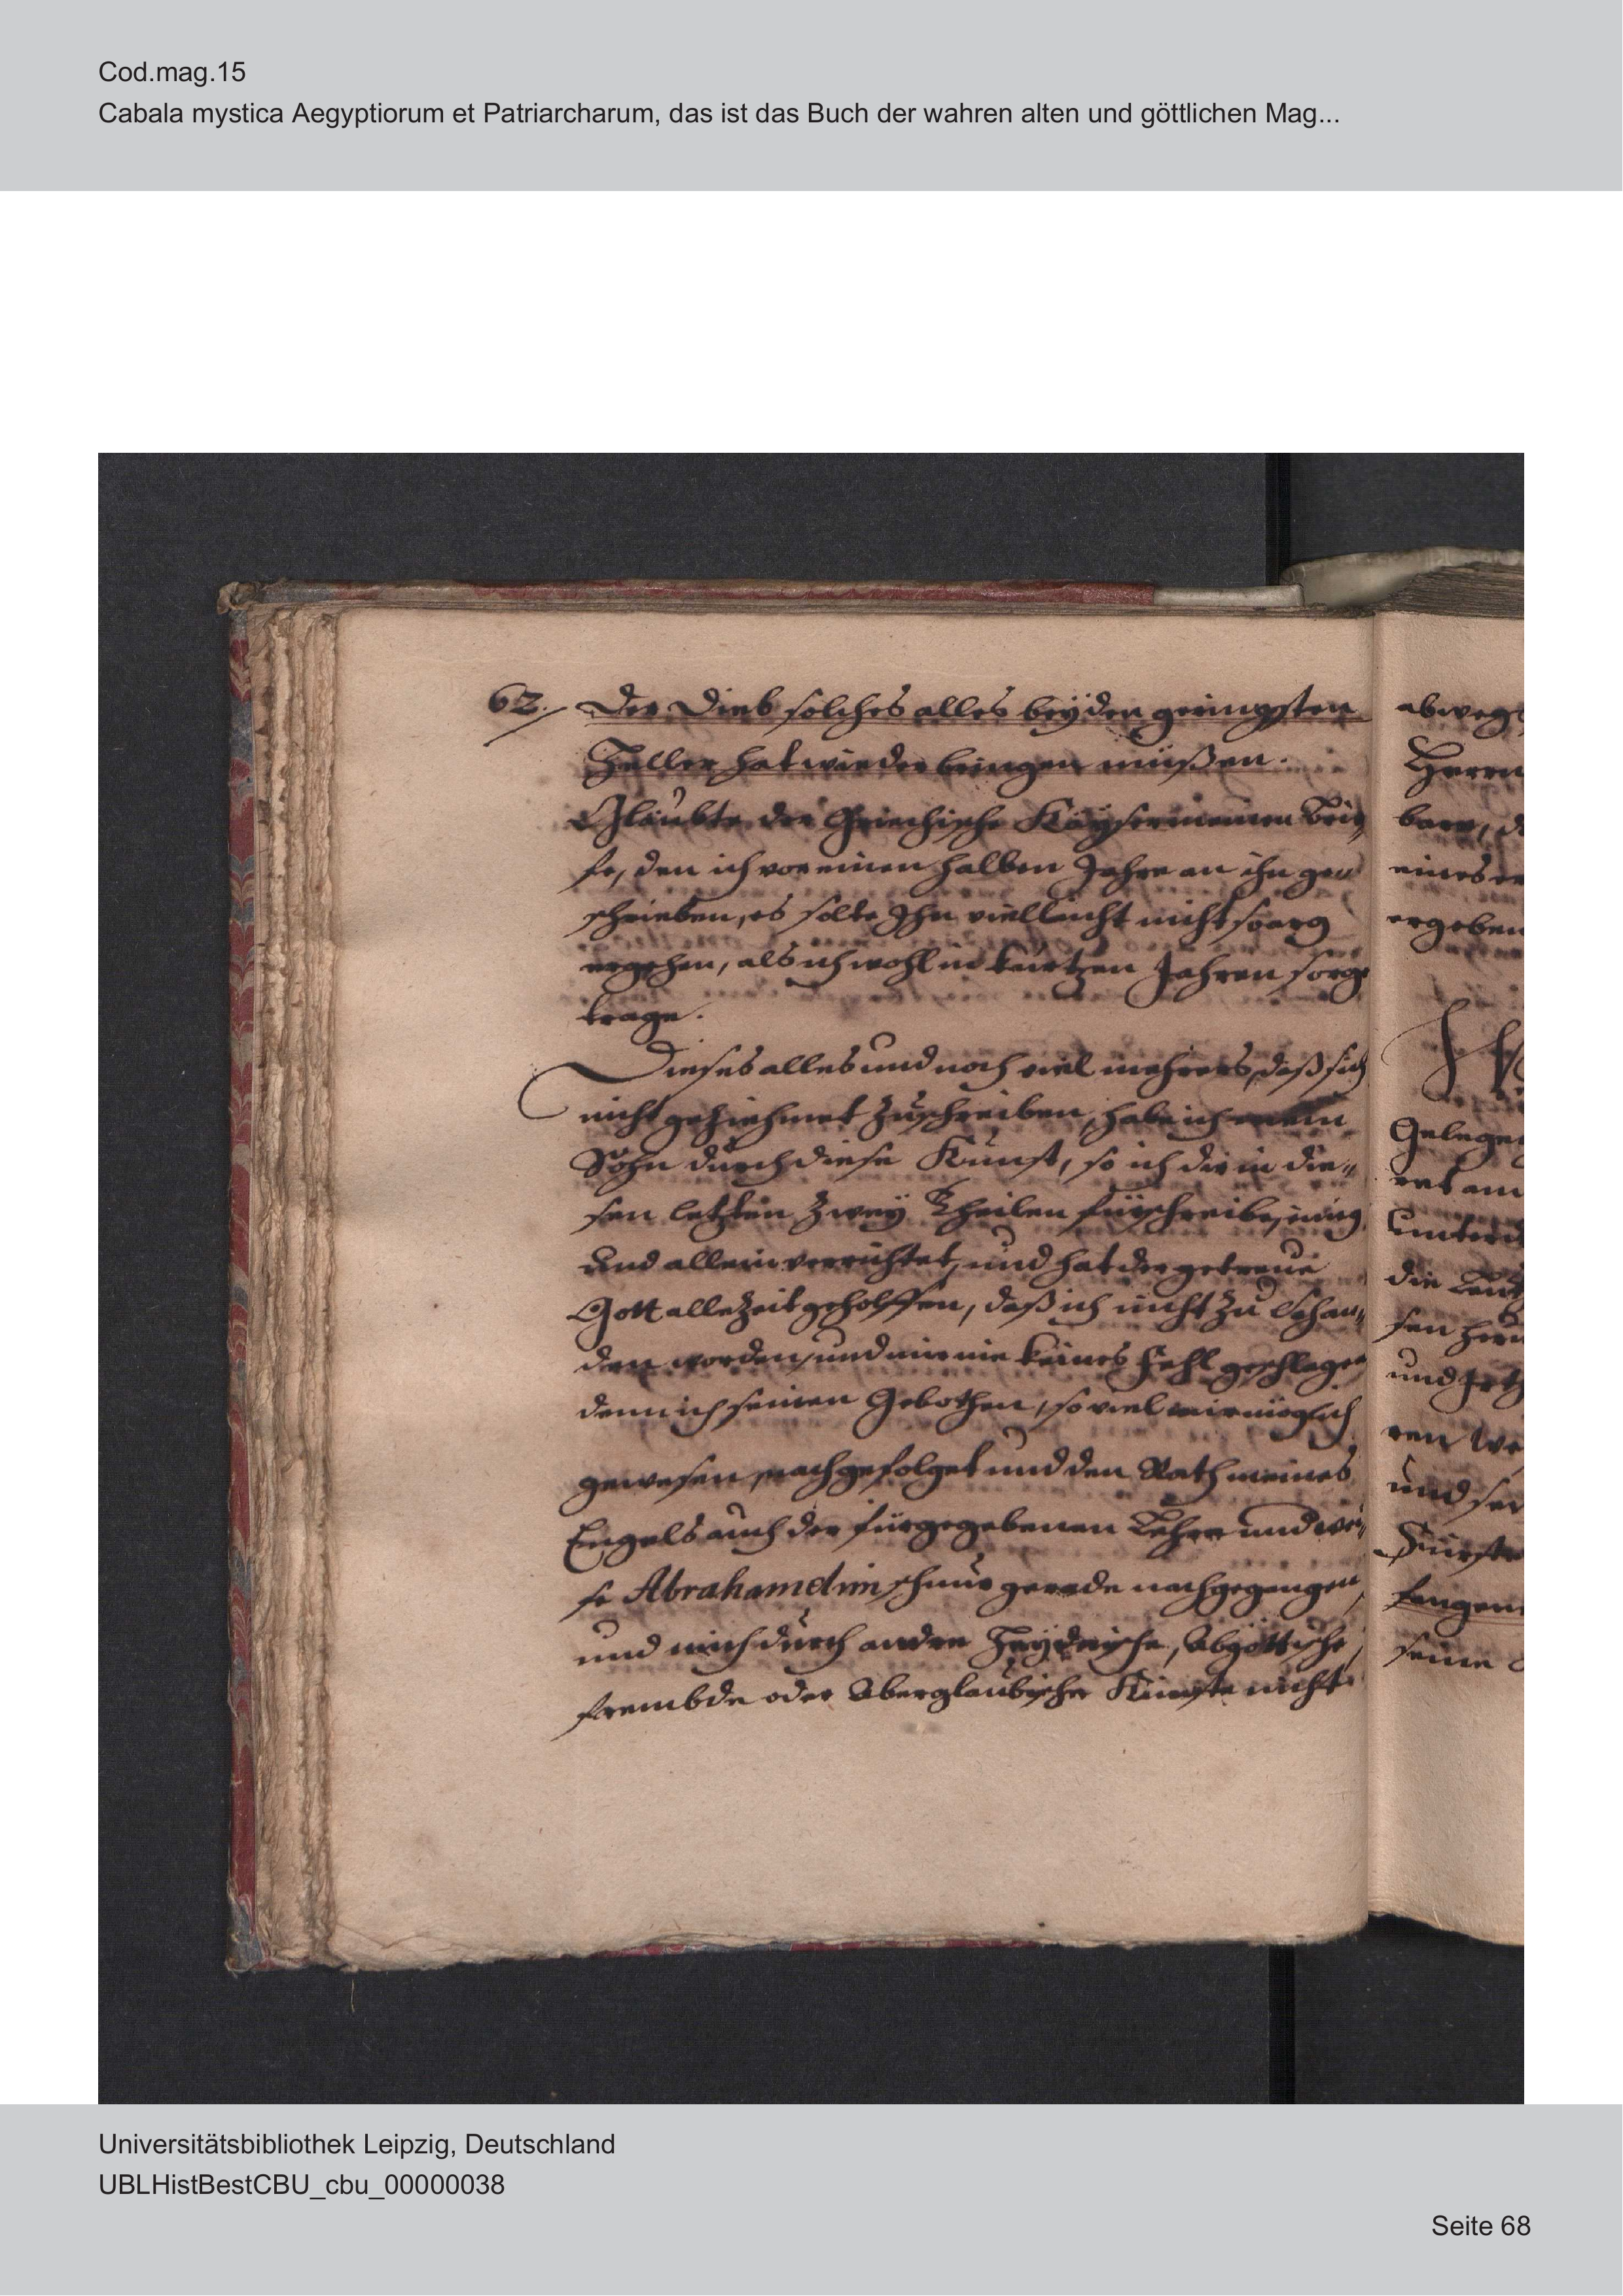 Cod.mag.15
Cabala mystica Aegyptiorum et Patriarcharum, das ist das Buch der wahren alten und göttlichen Mag...
62. Der Dieb solches alles bey den geringsten
Heller hat wieder bringen müßen.
Glaubte der Griechische Kayser meinen Brie,
fe, den ich vor einen halben Jahre an ihn ge„
schrieben, es solte Ihn vielleicht nicht so arg
ergehen, als ich wohl in kurtzen Jahren sorge
trage.
Dieses alles und noch viel mehrers, daß sich
nicht geziehmet zuschreiben, habe ich mein
Sohn durch diese Kunst, so ich dir in die„
sen letzten zweÿ Theilen fürschreibe, einig
und allein verrichtet, und hat der getreue
Gott allezeit geholffen, daß ich nicht zu Schan„
den worden, und mir nie keines fehl geschlagen
denn ich seinen Gebothen, so viel mir möglich
gewesen, nachgefolget und den Rath meines
Engels auch der fürgegebenen Lehre und wei„
se Abrahamelim schnur gerade nachgegangen,
und mich durch andre Heydnische, Abgöttische,
frembde oder Aberglaubische Künste nicht
abweg
Herrn
eines
ergeben
Gelegen
unter
die
und
ren
und
Fürste
seine
Universitätsbibliothek Leipzig, Deutschland
UBLHistBestCBU_cbu_00000038
Seite 68